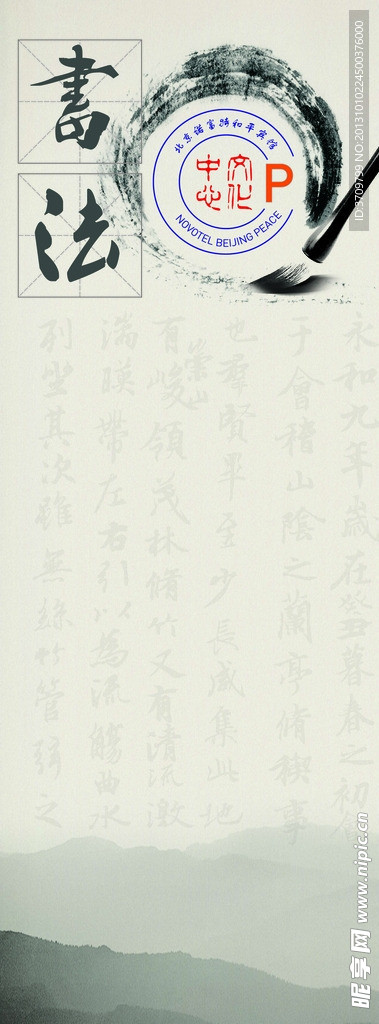 書法
北京诺富特和平宾馆
文化
中心
P
NOVOTEL BEIJING PEACE
永和九年歲在癸丑暮春之初會
于會稽山陰之蘭亭脩稧事
也羣賢畢至少長咸集此地
有崇山峻領茂林脩竹又有清流激
湍暎帶左右引以為流觴曲水
列坐其次雖無絲竹管弦之
ID:3709799 NO:20131010224500376000
昵享网 www.nipic.cn